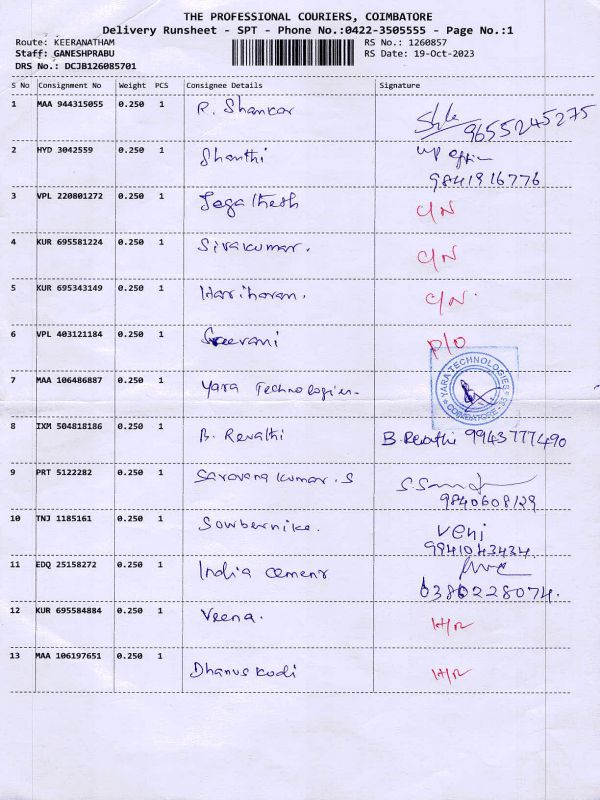 THE PROFESSIONAL COURIERS, COIMBATORE
Delivery Runsheet - SPT - Phone No.:0422-3505555 - Page No.:1
Route: KEERANATHAM RS No.: 1260857
Staff: GANESHPRABU RS Date: 19-Oct-2023
DRS No.: DCJB126085701
S No Consignment No Weight PCS Consignee Details Signature
1 MAA 944315055 0.250 1 R. Shankar
9655245275
2 HYD 3042559 0.250 1 Shanthi
9841916776
3 VPL 220801272 0.250 1 Jegathesh C/N
4 KUR 695581224 0.250 1 Sivakumar. C/N
5 KUR 695343149 0.250 1 Hariharan. C/N.
6 VPL 403121184 0.250 1 Sreevani P/O
7 MAA 106486887 0.250 1 Yara Technologies-
YARA TECHNOLOGIES
COIMBATORE - 35
8 IXM 504818186 0.250 1 B. Revathi B. Revathi 9943777490
9 PRT 5122282 0.250 1 Saravana kumar. S
9840608129
10 TNJ 1185161 0.250 1 Sowbernika. Veni
9941043434.
11 EDQ 25158272 0.250 1 India cement
6380228074.
12 KUR 695584884 0.250 1 Veena. H/R
13 MAA 106197651 0.250 1 Dhanuskodi H/R